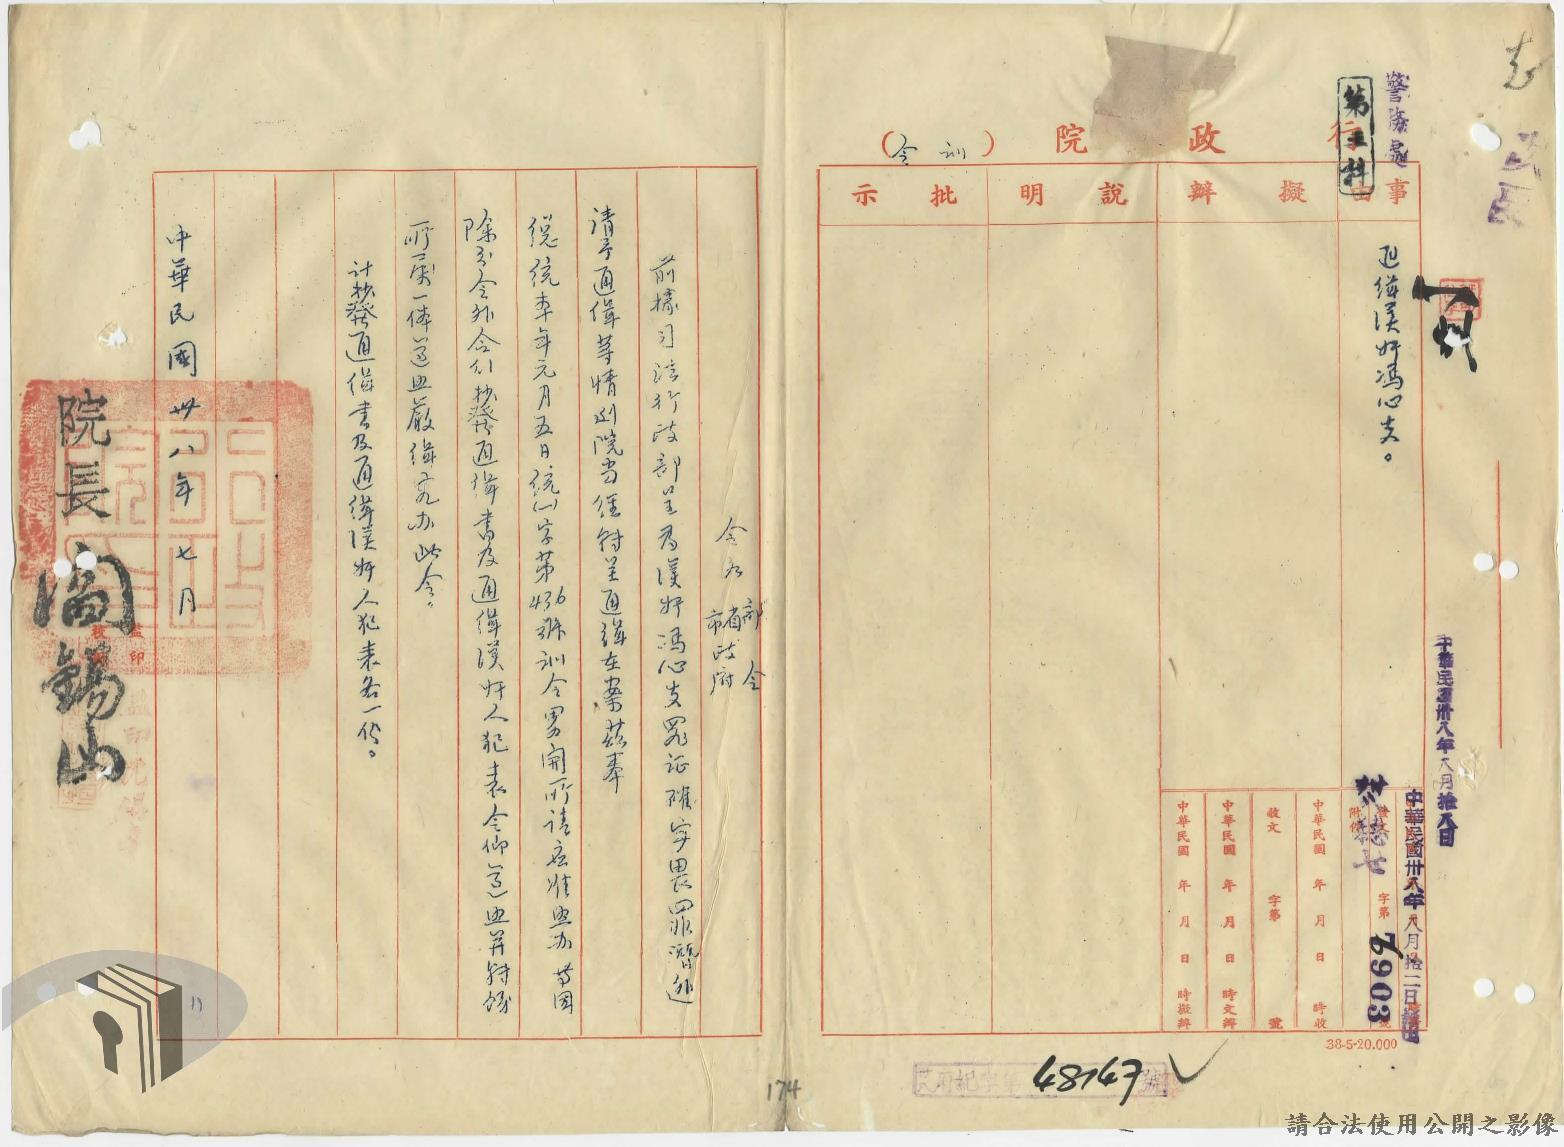 行政院（訓令）
警務處
第五科
事由
擬辦
說明
批示
通緝漢奸馮心支。
中華民國卅八年八月拾八日
中華民國卅八年八月拾二日
字第
6903
附件
中華民國 年 月 日 時收
收文 字第 號
中華民國 年 月 日 時文辦
中華民國 年 月 日 時擬辦
38-5-20.000
48147
174
令各部會
省市政府
前據司法行政部呈為漢奸馮心支罪証確實畏罪潛逃
請予通緝等情到院當經轉呈通緝在案茲奉
總統本年元月五日統(一)字第436號訓令畧開所請應准照办等因
除分令外合行抄發通緝書及通緝漢奸人犯表令仰遵照并轉飭
所屬一体遵照嚴緝究办此令。
計抄發通緝書及通緝漢奸人犯表各一份。
中華民國卅八年七月
院長閻錫山
監印
請合法使用公開之影像